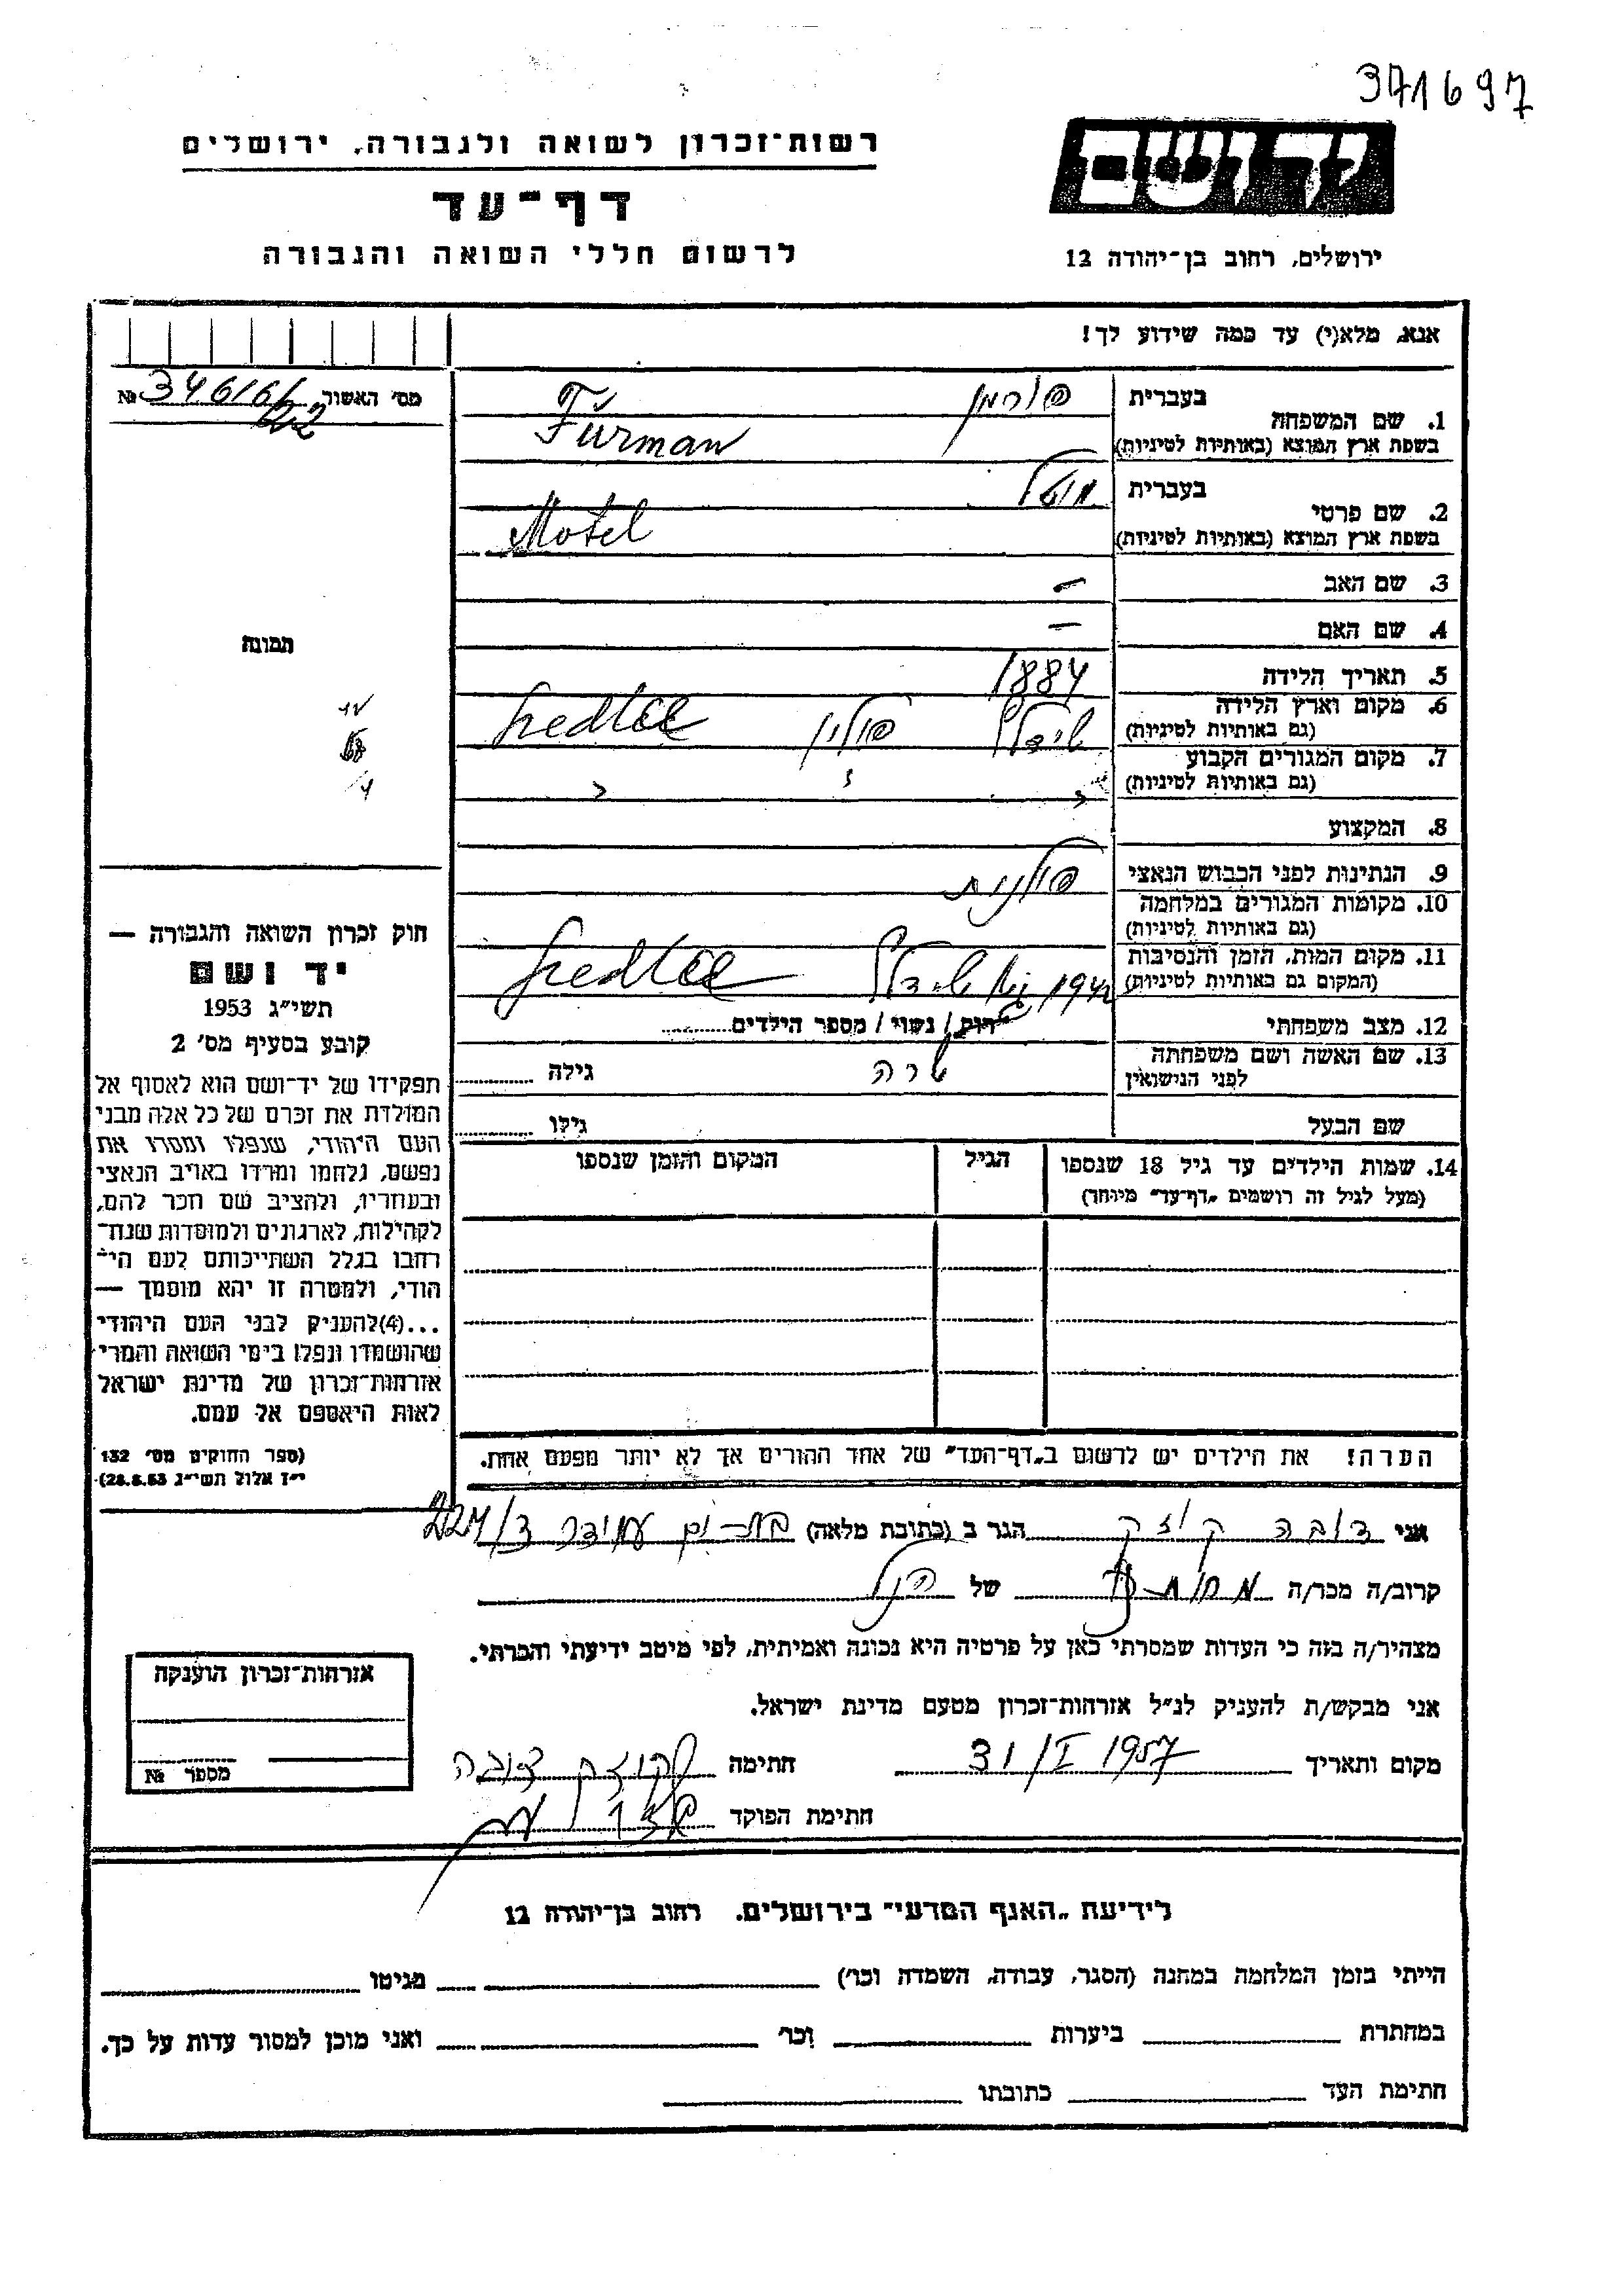 371697
יד ושם
רשות־זכרון לשואה ולגבורה, ירושלים
דף־עד
לרשום חללי השואה והגבורה
ירושלים, רחוב בן־יהודה 12
אנא, מלא(י) עד כמה שידוע לך!
מס' האשור № 34616/
122
בעברית פורמן
1. שם המשפחה
בשפת ארץ המוצא (באותיות לטיניות) Furman
בעברית מוטל
2. שם פרטי
בשפת ארץ המוצא (באותיות לטיניות) Motel
3. שם האב —
4. שם האם —
תמונה
5. תאריך הלידה 1884
6. מקום וארץ הלידה
(גם באותיות לטיניות) פולין
7. מקום המגורים הקבוע
(גם באותיות לטיניות)
8. המקצוע
9. הנתינות לפני הכבוש הנאצי פולנית
10. מקומות המגורים במלחמה
(גם באותיות לטיניות)
11. מקום המות, הזמן והנסיבות
(המקום גם באותיות לטיניות) 1942
12. מצב משפחתי רווק / נשוי / מספר הילדים
13. שם האשה ושם משפחתה
לפני הנישואין שרה גילה
שם הבעל גילו
14. שמות הילדים עד גיל 18 שנספו הגיל המקום והזמן שנספו
(מעל לגיל זה רושמים „דף־עד" מיוחד)
הערה! את הילדים יש לרשום ב„דף־העד" של אחד ההורים אך לא יותר מפעם אחת.
חוק זכרון השואה והגבורה —
יד ושם
תשי״ג 1953
קובע בסעיף מס' 2
תפקידו של יד־ושם הוא לאסוף אל
המולדת את זכרם של כל אלה מבני
העם היהודי, שנפלו ומסרו את
נפשם, נלחמו ומרדו באויב הנאצי
ובעוזריו, ולהציב שם וזכר להם,
לקהילות, לארגונים ולמוסדות שנח־
רבו בגלל השתייכותם לעם הי־
הודי, ולמטרה זו יהא מוסמך —
...(4) להעניק לבני העם היהודי
שהושמדו ונפלו בימי השואה והמרי
אזרחות־זכרון של מדינת ישראל
לאות היאספם אל עמם.
(ספר החוקים מס' 132
י״ז אלול תשי״ג 28.8.53)
אני דובה קוזק הגר ב (כתובת מלאה) בת-ים עמידר ד/227
קרוב/ה מכר/ה של הנ״ל
מצהיר/ה בזה כי העדות שמסרתי כאן על פרטיה היא נכונה ואמיתית, לפי מיטב ידיעתי והכרתי.
אני מבקש/ת להעניק לנ״ל אזרחות־זכרון מטעם מדינת ישראל.
מקום ותאריך 31/I 1957 חתימה קוזק דובה
חתימת הפוקד
אזרחות־זכרון הוענקה
מספר №
לידיעת „האגף המדעי" בירושלים. רחוב בן־יהודה 12
הייתי בזמן המלחמה במחנה (הסגר, עבודה, השמדה וכו') מגיטו
במחתרת ביערות וכו' ואני מוכן למסור עדות על כך.
חתימת העד כתובתו